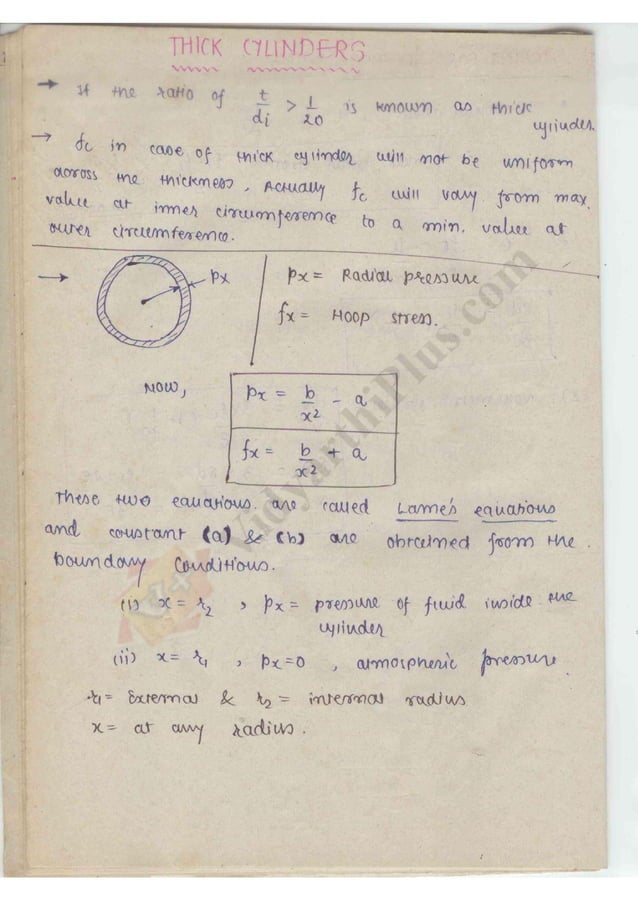 THICK CYLINDERS
→ If the ratio of t/di > 1/20 is known as thick cylinder.
→ fc in case of thick cylinder will not be uniform
across the thickness, Actually fc will vary from max.
value at inner circumference to a min. value at
outer circumference.
→ px
px = Radial pressure
fx = Hoop stress.
Now,
px = b/x² - a
fx = b/x² + a
These two equations are called Lame's equations
and constant (a) & (b) are obtained from the
boundary conditions.
(i) x = r2 , px = pressure of fluid inside the
cylinder
(ii) x = r1 , px=0 , atmospheric pressure
r1 = External & r2 = internal radius
x = at any radius.
VidyarthiPlus.com